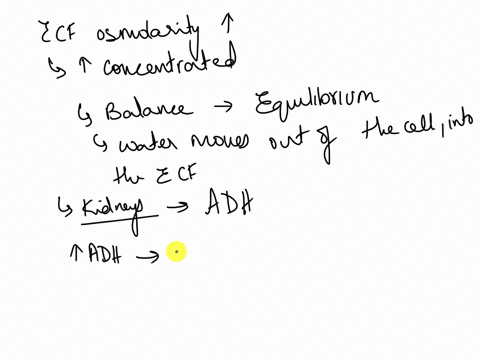 ECF osmolarity ↑
↳ ↑ concentrated
↳ Balance → Equilibrium
↳ water moves out of the cell, into
the ECF
↳ Kidneys → ADH
↑ ADH →